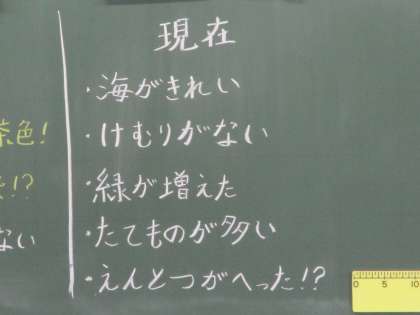 現在
・海がきれい
・けむりがない
・緑が増えた
・たてものが多い
・えんとつがへった!?
茶色!
!?
ない
0 5 10